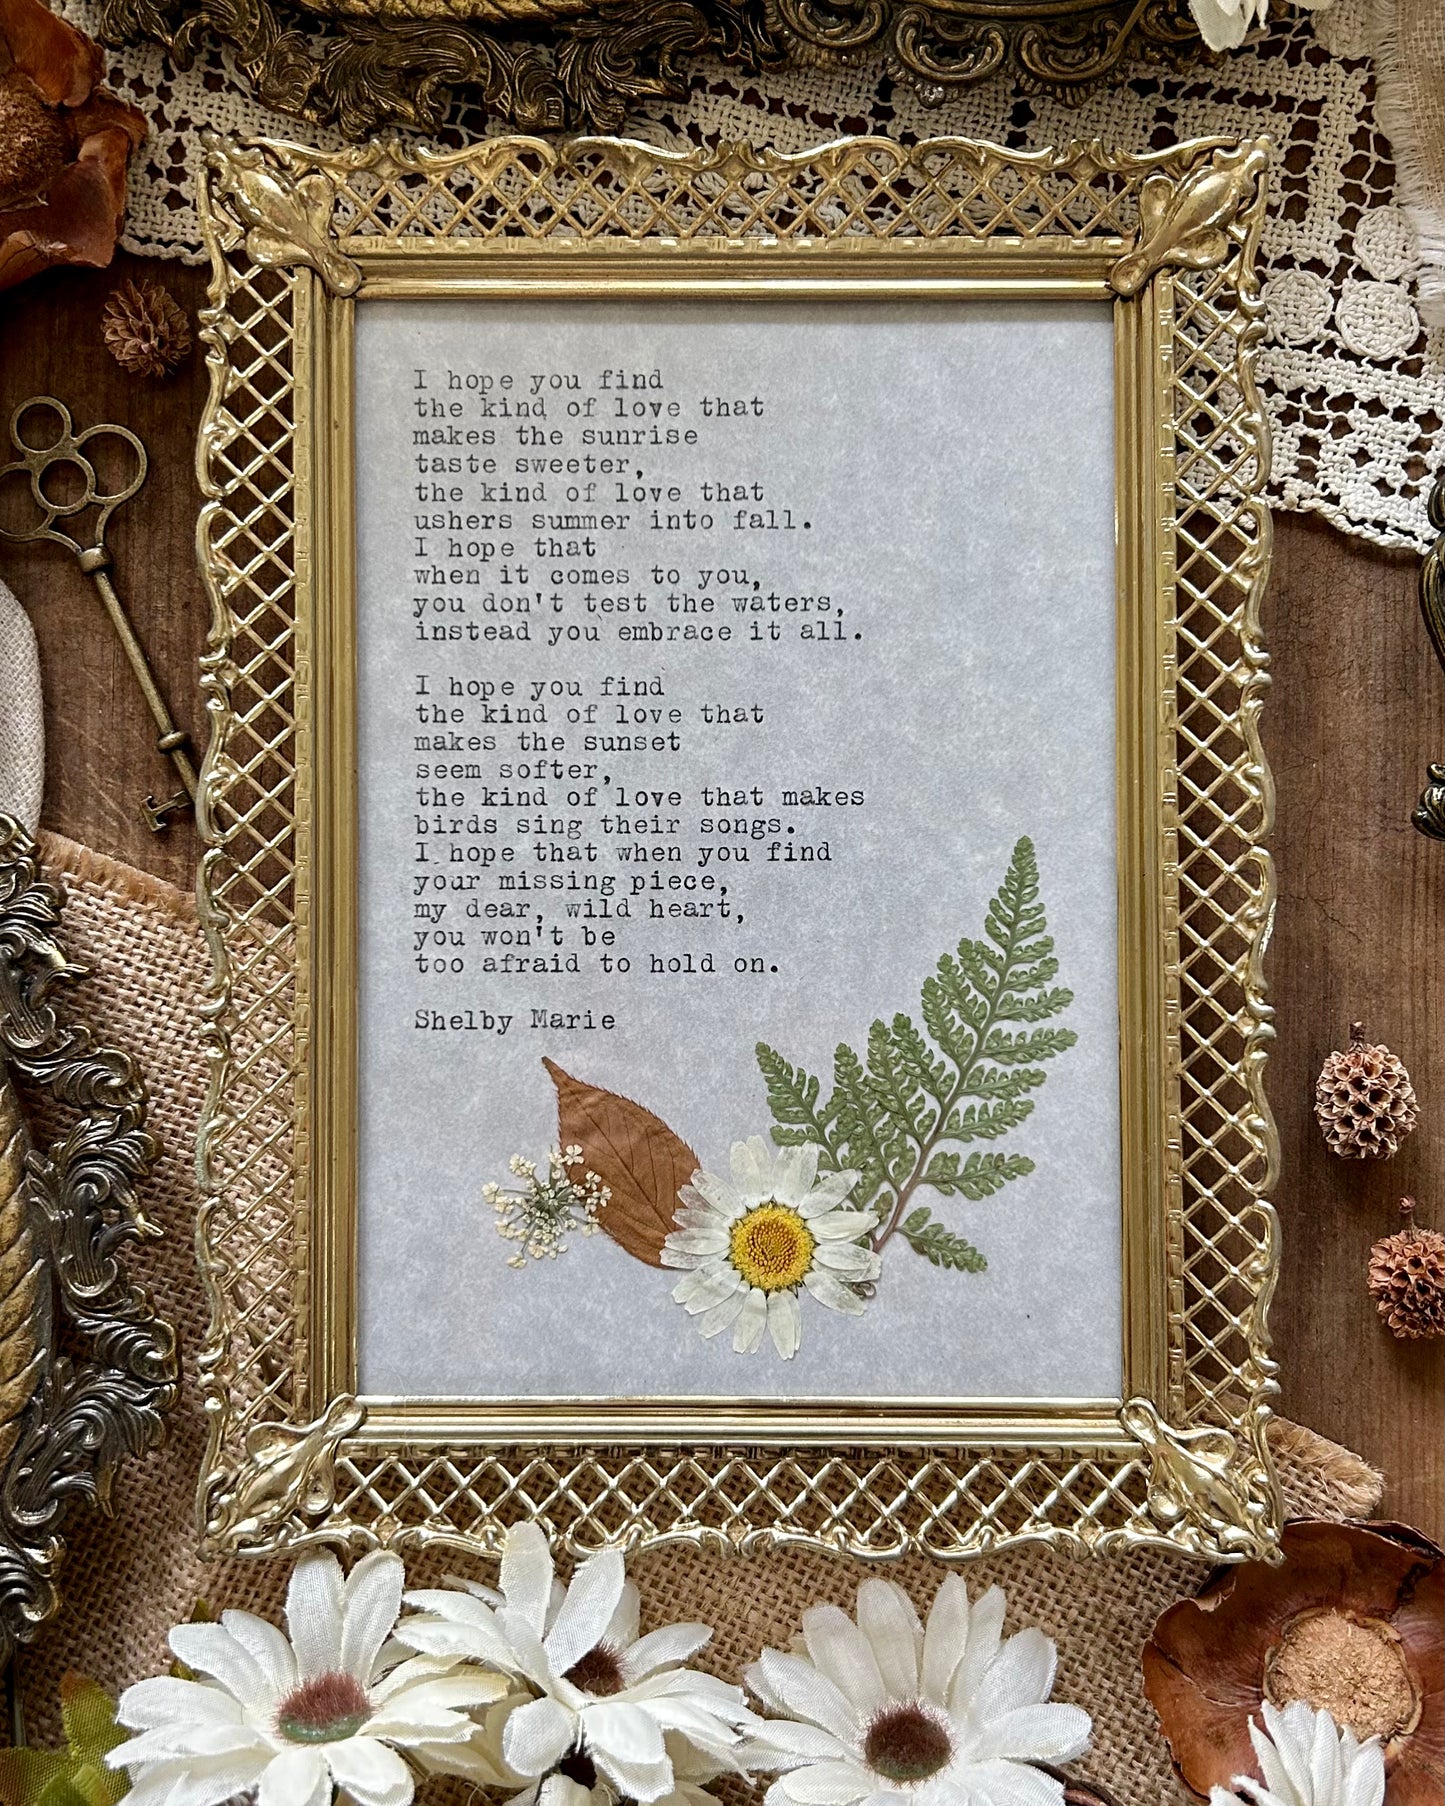 I hope you find
the kind of love that
makes the sunrise
taste sweeter,
the kind of love that
ushers summer into fall.
I hope that
when it comes to you,
you don't test the waters,
instead you embrace it all.

I hope you find
the kind of love that
makes the sunset
seem softer,
the kind of love that makes
birds sing their songs.
I hope that when you find
your missing piece,
my dear, wild heart,
you won't be
too afraid to hold on.

Shelby Marie